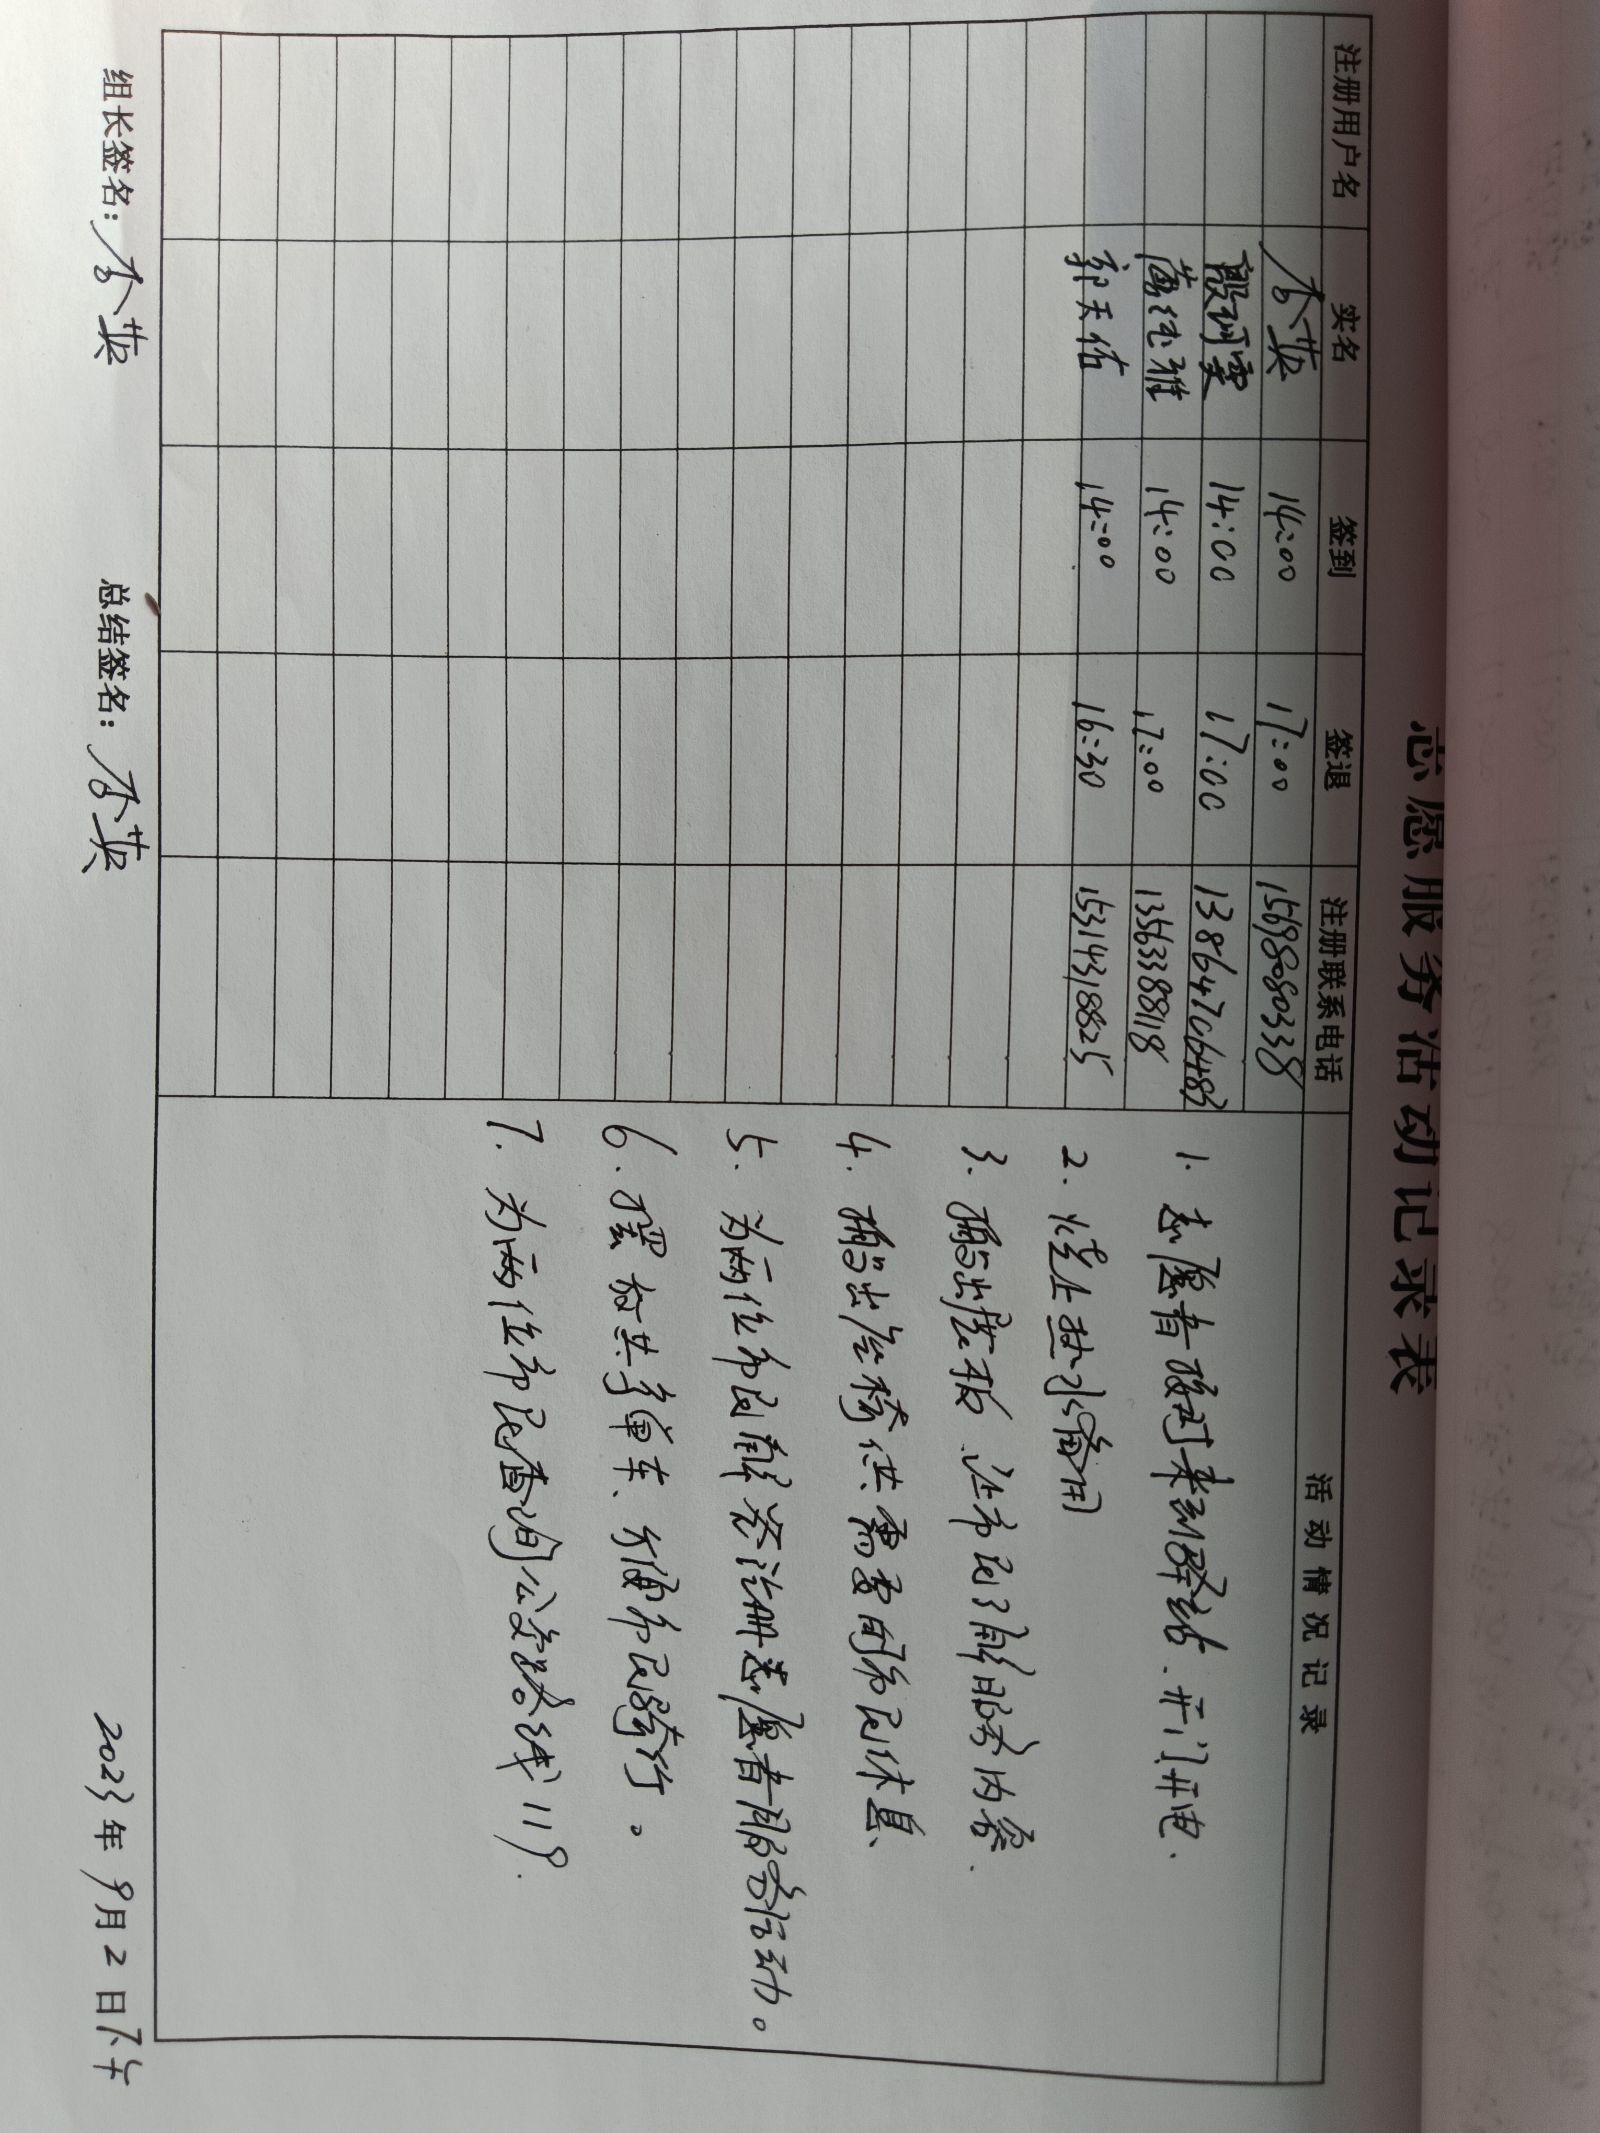 志愿服务活动记录表
注册用户名 实名 签到 签退 注册联系电话 活动情况记录
14:00 17:00 15698080338
殷珂雯 14:00 17:00 13864706483
14:00 17:00 13563388118
郭天佑 14:00 16:30 15314318825
1. 志愿者按时来到驿站、开门开电.
2. 烧上热水备用
3. 搬出展板、让市民了解服务内容.
4. 搬出座椅供需要的市民休息.
5. 为两位市民解答注册志愿者服务活动。
6. 摆放共享单车、方便市民骑行。
7. 为两位市民查询公交路线119.
组长签名: 总结签名: 2023年9月2日下午